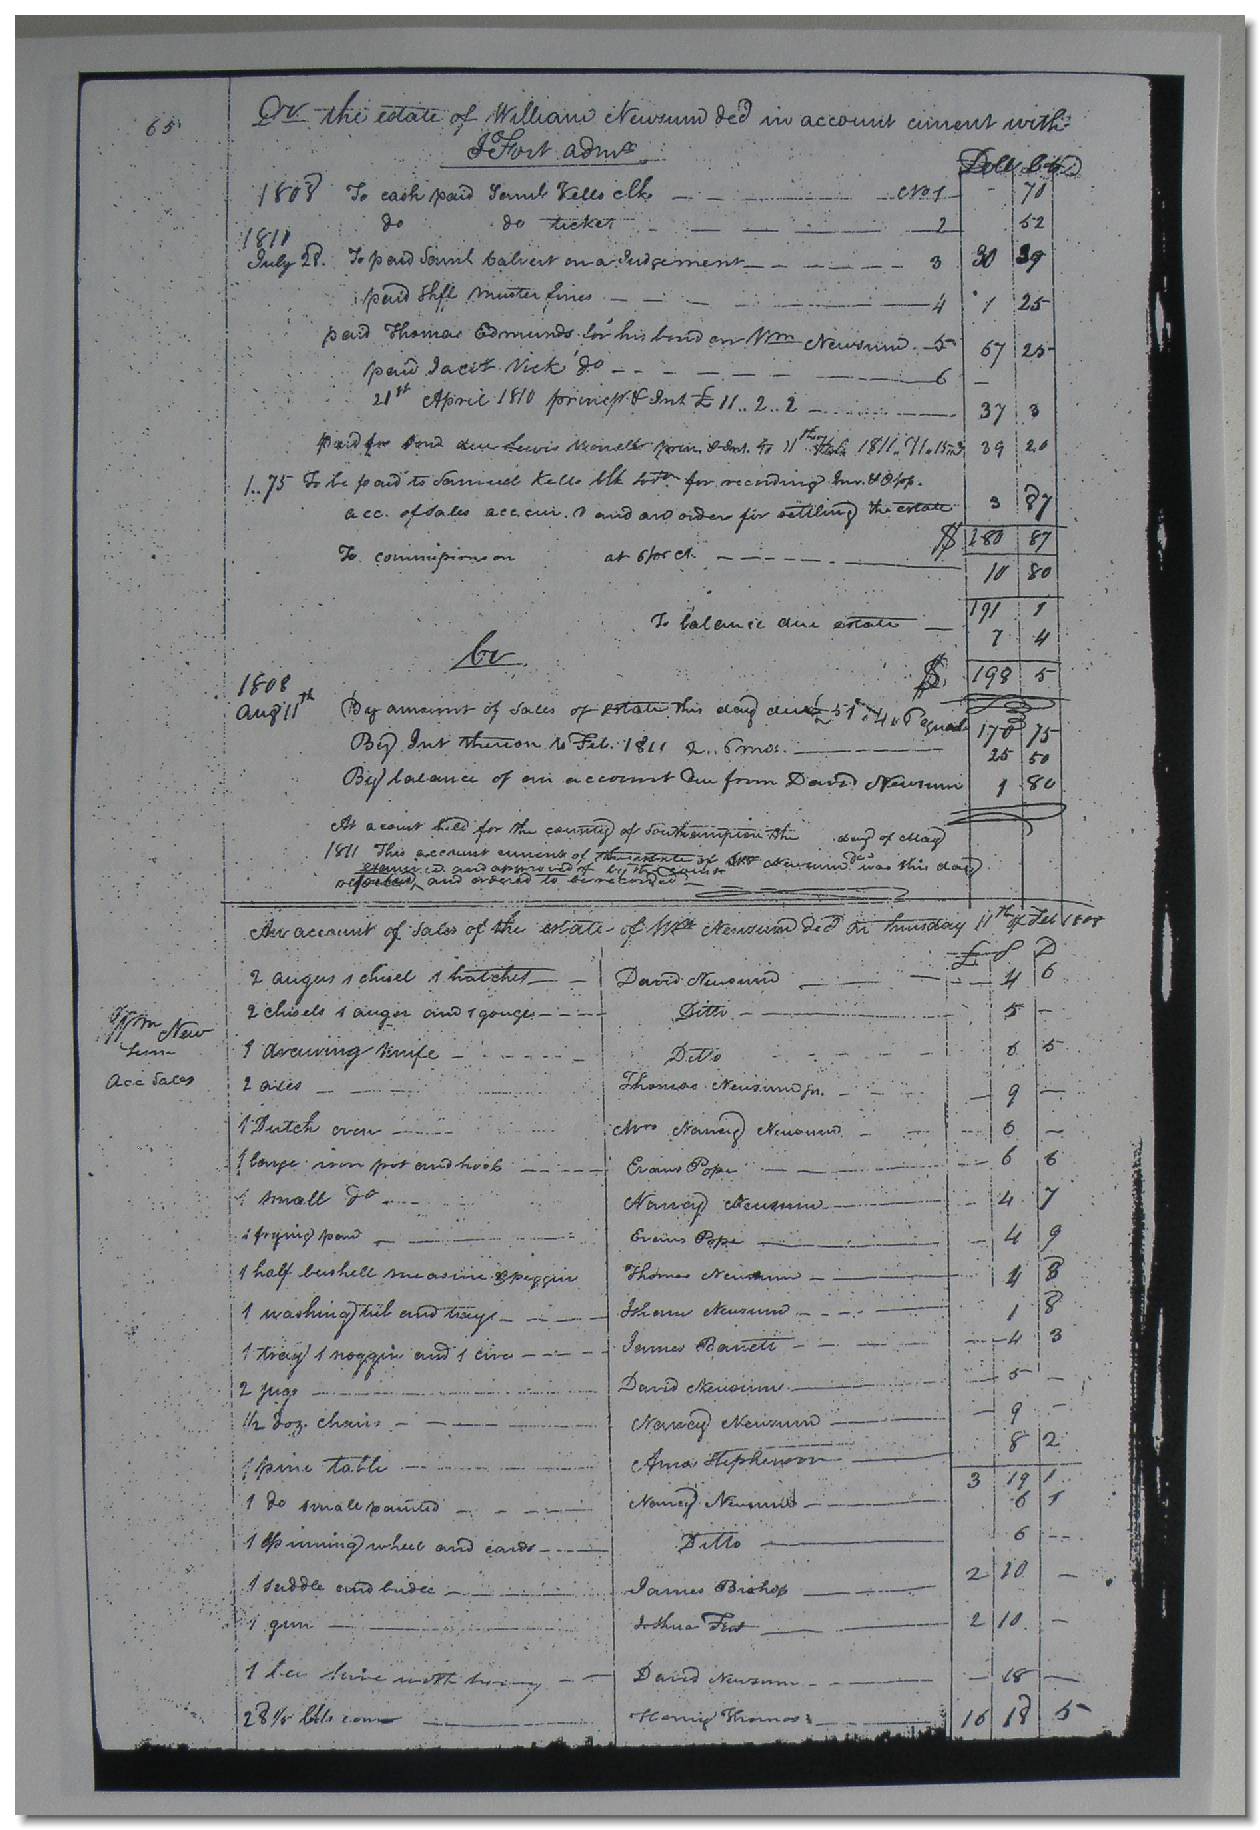 65
Dr the estate of William Newsum decd in account current with
J Fort adm
Doll Cts
1808 To cash paid Saml Kello clk No 1 70
do do ticket 2 52
1810
July 28. To paid Saml Calvert on a Judgement 3 30 39
paid Shff muster fines 4 1 25
paid Thomas Edmunds for his bond on Wm Newsum 5 67 25
paid Jacob Vick do 6 —
21st April 1810 princpl & Int £ 11..2..2 37 3
paid for bond due Lewis prin. & Int. to 11th Feb. 1811 39 20
1..75 To be paid to Samuel Kello clk for recording Inv.
acc. of sales acc. cur. and an order for settling the estate 3 87
$ 180 87
To commissions on at 6 pr ct. 10 80
191 1
To balance due estate 7 4
Cr
$ 198 5
1808
Aug 11th By amount of sales of estate this day due £ 51..4..6 equal 170 75
By Int thereon to Feb. 1811 2..6 mos. 25 50
By balance of an account due from David Newsum 1 80
At a court held for the county of Southampton the day of May
1811 This account current of the estate of Newsum decd was this day
examined and approved of by the court
and ordered to be recorded
An account of sales of the estate of Wm Newsum decd on thursday 11th of Feb 1808
£ S D
2 augers 1 chisel 1 hatchet David Newsum 4 6
2 chisels 1 auger and 1 gouge Ditto 5 —
Wm New
sum
Acc Sales
1 drawing knife Ditto 6 5
2 axes Thomas Newsum jr. 9 —
1 Dutch oven Mrs Nancy Newsum 6 —
1 large iron pot and hook Evans Pope 6 6
1 small do Nancy Newsum 4 7
1 frying pan Evans Pope 4 9
1 half bushell measure & peggin Thomas Newsum 4 8
1 washing tub and trays Newsum 1 8
1 tray 1 noggin and 1 sive James Barrett 4 3
2 jugs David Newsum 5 —
1/2 doz. chairs Nancy Newsum 9 —
1 pine table Amos Stephenson 8 2
3 19 1
1 do small painted Nancy Newsum 6 1
1 spinning wheel and cards Ditto 6 —
1 saddle and bridle James Bishop 2 10 —
1 gun Joshua Fort 2 10 —
1 bee hive with honey David Newsum 18 —
28 1/5 bbls corn Henry Thomas 16 18 5